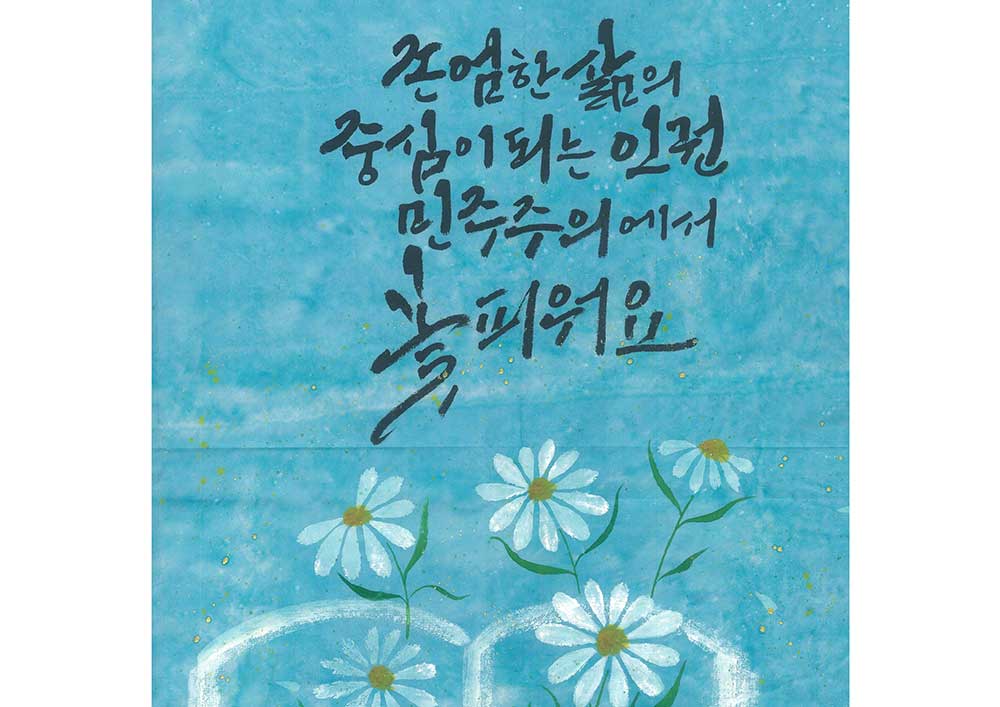 존엄한 삶의
중심이 되는 인권
민주주의에서
꽃피워요